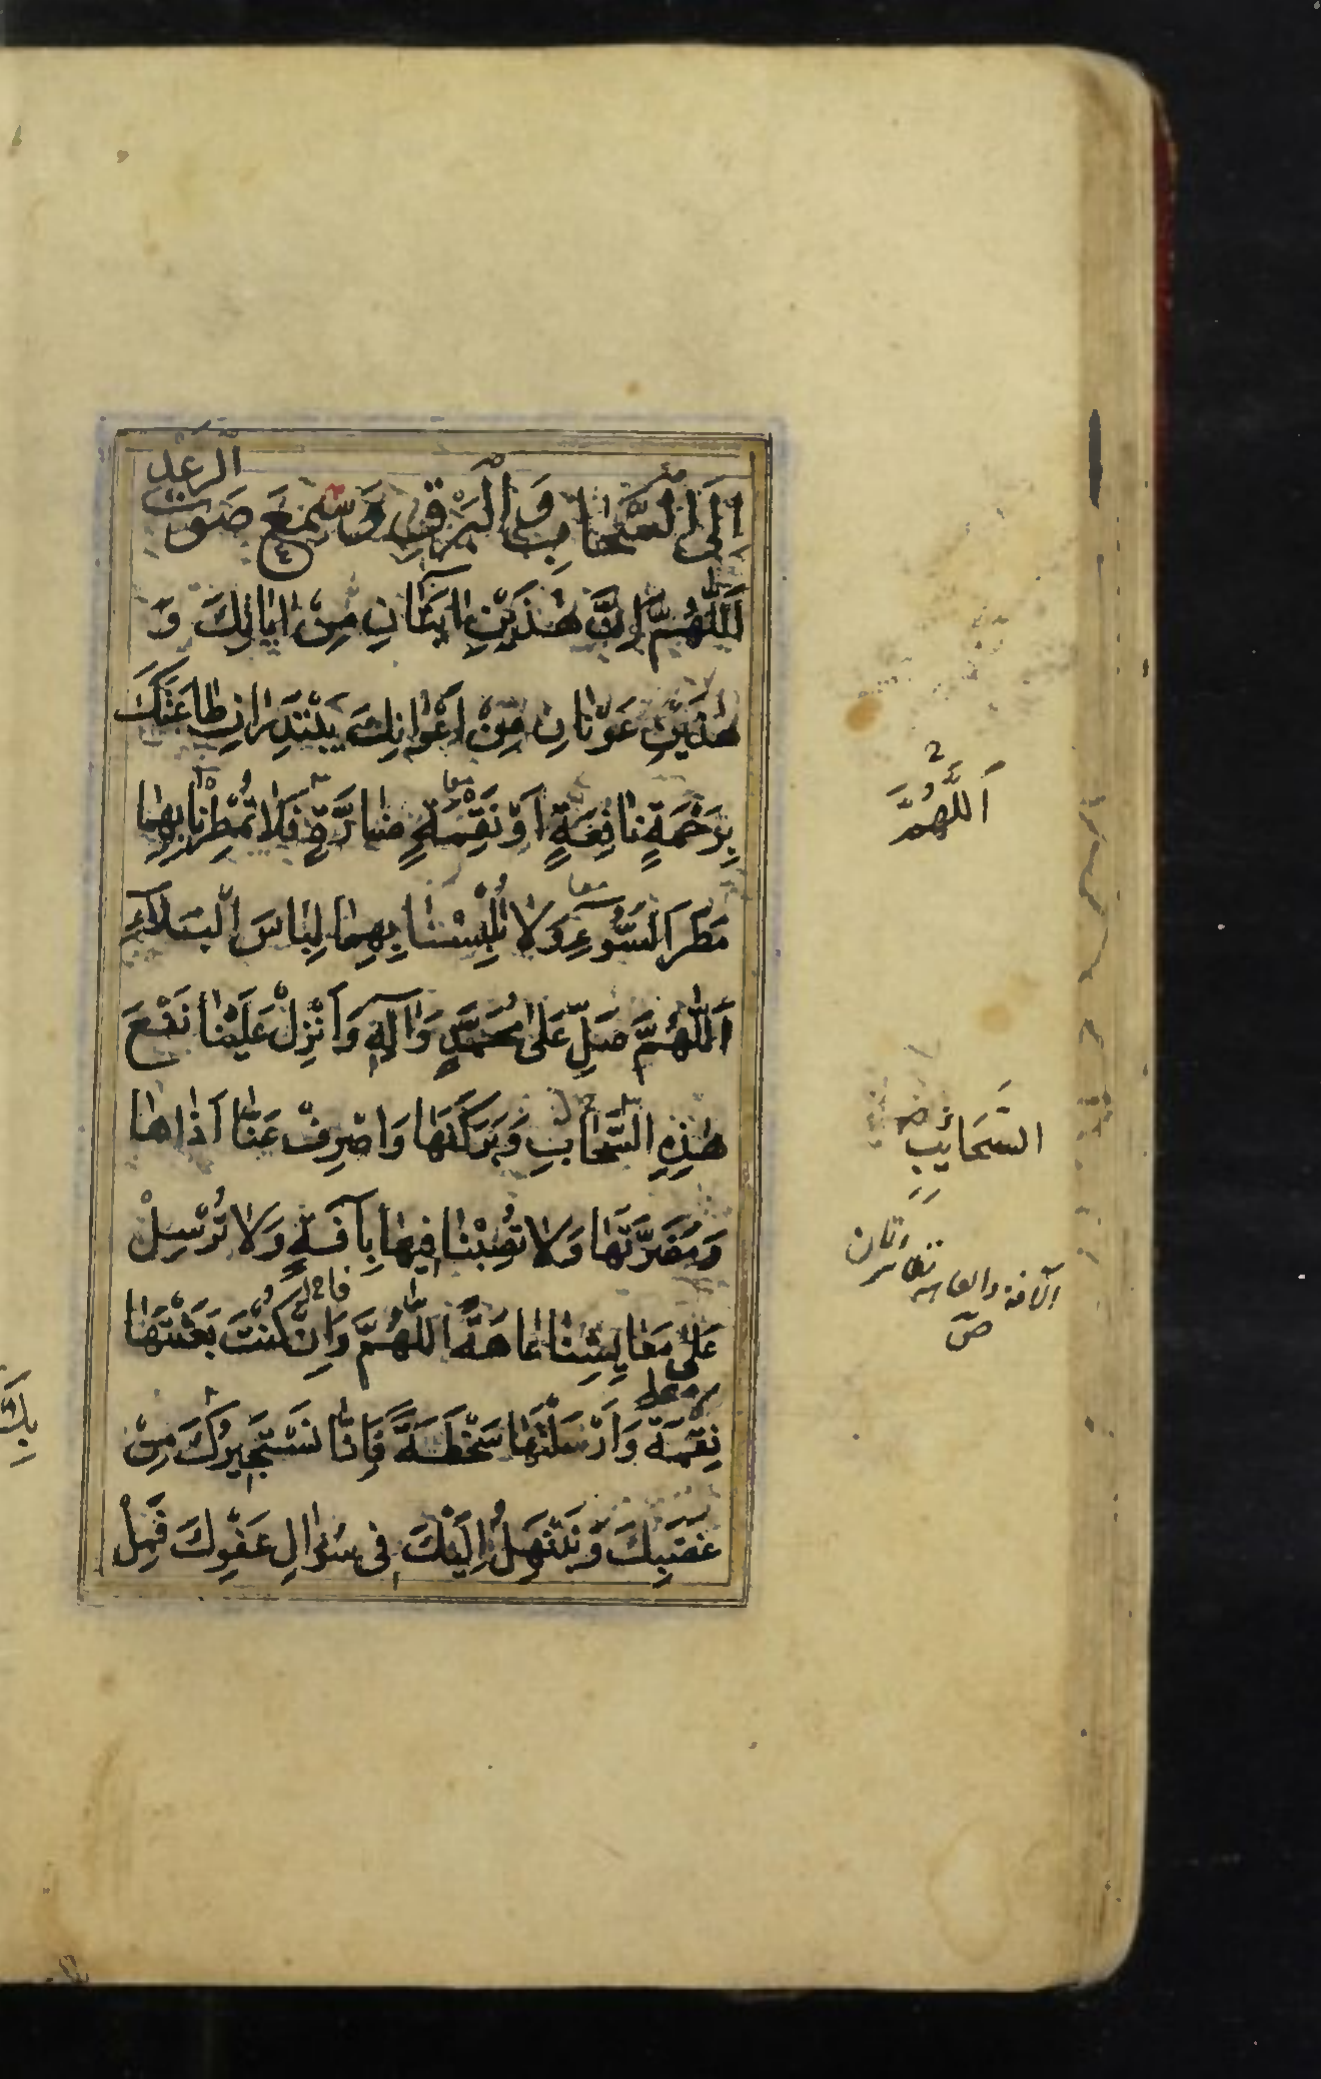 اِلَى السَّحَابِ وَ الْبَرْقِ وَ سَمِعَ صَوْتَ الرَّعْدِ
اَللّٰهُمَّ اِنَّ هٰذَيْنِ اٰيَتَانِ مِنْ اٰيَاتِكَ وَ
هٰذَيْنِ عَوْنَانِ مِنْ اَعْوَانِكَ يَبْتَدِرَانِ طَاعَتَكَ
بِرَحْمَةٍ نَافِعَةٍ اَوْ نَقِمَةٍ ضَارَّةٍ فَلَا تُمْطِرْنَا بِهِمَا
مَطَرَ السَّوْءِ وَلَا تُلْبِسْنَا بِهِمَا لِبَاسَ الْبَلَاءِ
اَللّٰهُمَّ صَلِّ عَلٰى مُحَمَّدٍ وَاٰلِهِ وَاَنْزِلْ عَلَيْنَا نَفْعَ
هٰذِهِ السَّحَابِ وَبَرَكَتَهَا وَاصْرِفْ عَنَّا اَذَاهَا
وَمَضَرَّتَهَا وَلَا تُصِبْنَا فِيهَا بِآفَةٍ وَلَا تُرْسِلْ
عَلٰى مَعَايِشِنَا عَاهَةً اَللّٰهُمَّ وَاِنْ كُنْتَ بَعَثْتَهَا
نِقْمَةً وَاَرْسَلْتَهَا سَخْطَةً فَاِنَّا نَسْتَجِيرُكَ مِنْ
غَضَبِكَ وَنَبْتَهِلُ اِلَيْكَ فِى سُؤَالِ عَفْوِكَ فَمِلْ
2
اَللّٰهُمَّ
السَّحَايِبِ
الآفة والعاهة متقاربتان
ص
بِكَ